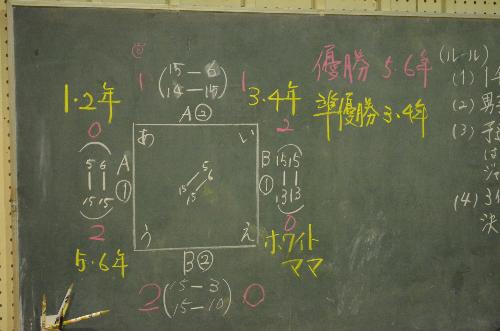 優勝 5.6年
準優勝 3.4年
1 (15-6 1
14-15)
1.2年
3.4年
A②
0
2
あ
い
5 6
15 15
A
①
5
6
15
15
B
①
15 15
13 13
2
0
う
え
5.6年
ホワイト
ママ
B②
2 (15-3 0
15-10)
(ルール)
(1) 1
(2) 男
(3)
は
(4) 3
決